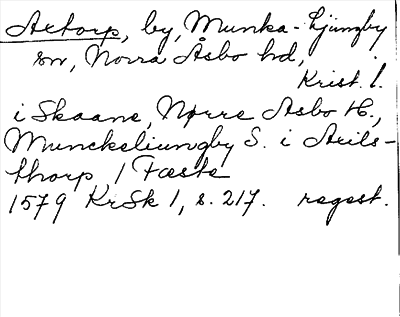 Axtorp, by, Munka-Ljungby
sn, Norra Åsbo hd,
Krist. l.
i Skaane, Nørre Asbo H.,
Munckeliungby S. i Axils-
thorp / Fæste
1579 KrSk 1, s. 217. regest.